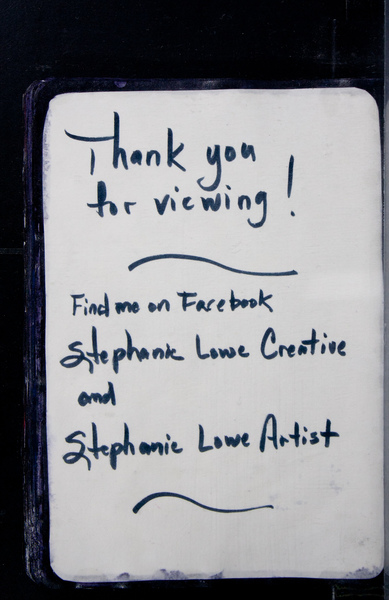 Thank you
for viewing!
Find me on Facebook
Stephanie Lowe Creative
and
Stephanie Lowe Artist